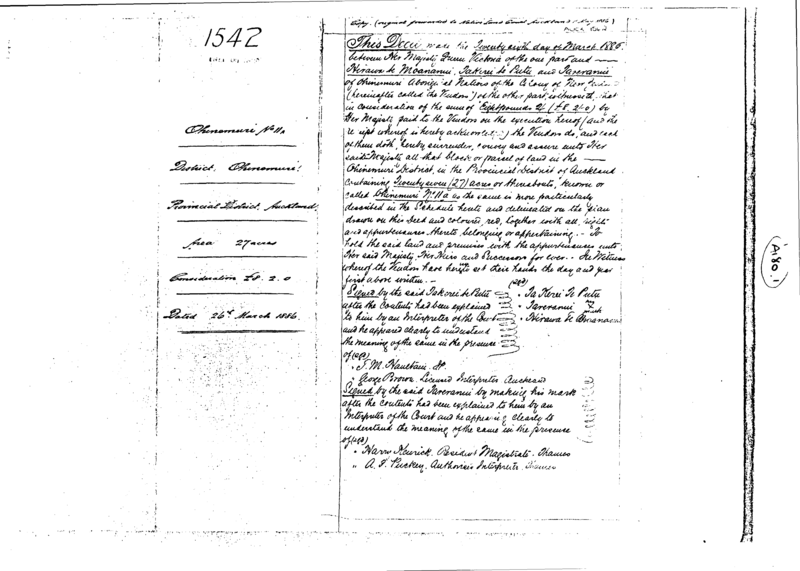 1542
Ohinemuri No 11a
District, Ohinemuri
Provincial District, Auckland
Area 27 acres
Consideration £8. 2. 0
Dated 26th March 1886.
Copy. (original forwarded to Native Land Court Auckland
This Deed made the Twenty sixth day of March 1886
between Her Majesty Queen Victoria of the one part and
Hirawa te Moananui, Takerei te Putu and Taveranui
of Ohinemuri Aboriginal Natives of the Colony of New
(hereinafter called the Vendors) of the other part witnesseth that
in consideration of the sum of Eight pounds 2/- (£8.2.0) by
Her Majesty paid to the Vendors on the execution hereof (and the
receipt whereof is hereby acknowledged) the Vendors do, and each
of them doth, hereby surrender, convey and assure unto Her
said Majesty all that block or parcel of land in the
Ohinemuri District, in the Provincial District of Auckland
containing Twenty seven (27) acres or thereabouts, known or
called Ohinemuri No 11a as the same is more particularly
described in the Schedule hereto and delineated on the plan
drawn on this Deed and coloured red, together with all rights
and appurtenances thereto belonging or appertaining. - To
hold the said land and premises with the appurtenances unto
Her said Majesty, Her Heirs and Successors for ever. - In Witness
whereof the Vendors have hereto set their hands the day and year
first above written. -
Signed by the said Takerei te Putu
after the Contents had been explained
to him by an Interpreter of the Court
and he appeared clearly to understand
the meaning of the same in the presence
of
T. M. Haultain
George Brown, Licensed Interpreter Auckland
Ta Kerei Te Putu
Taveranui x
mark
Hirawa te Moananui
Signed by the said Taveranui by making his mark
after the contents had been explained to him by an
Interpreter of the Court and he appearing clearly to
understand the meaning of the same in the presence
of
Harry Kenrick. Resident Magistrate. Thames
A. J. Puckey. Authorised Interpreter. Thames
A80.1